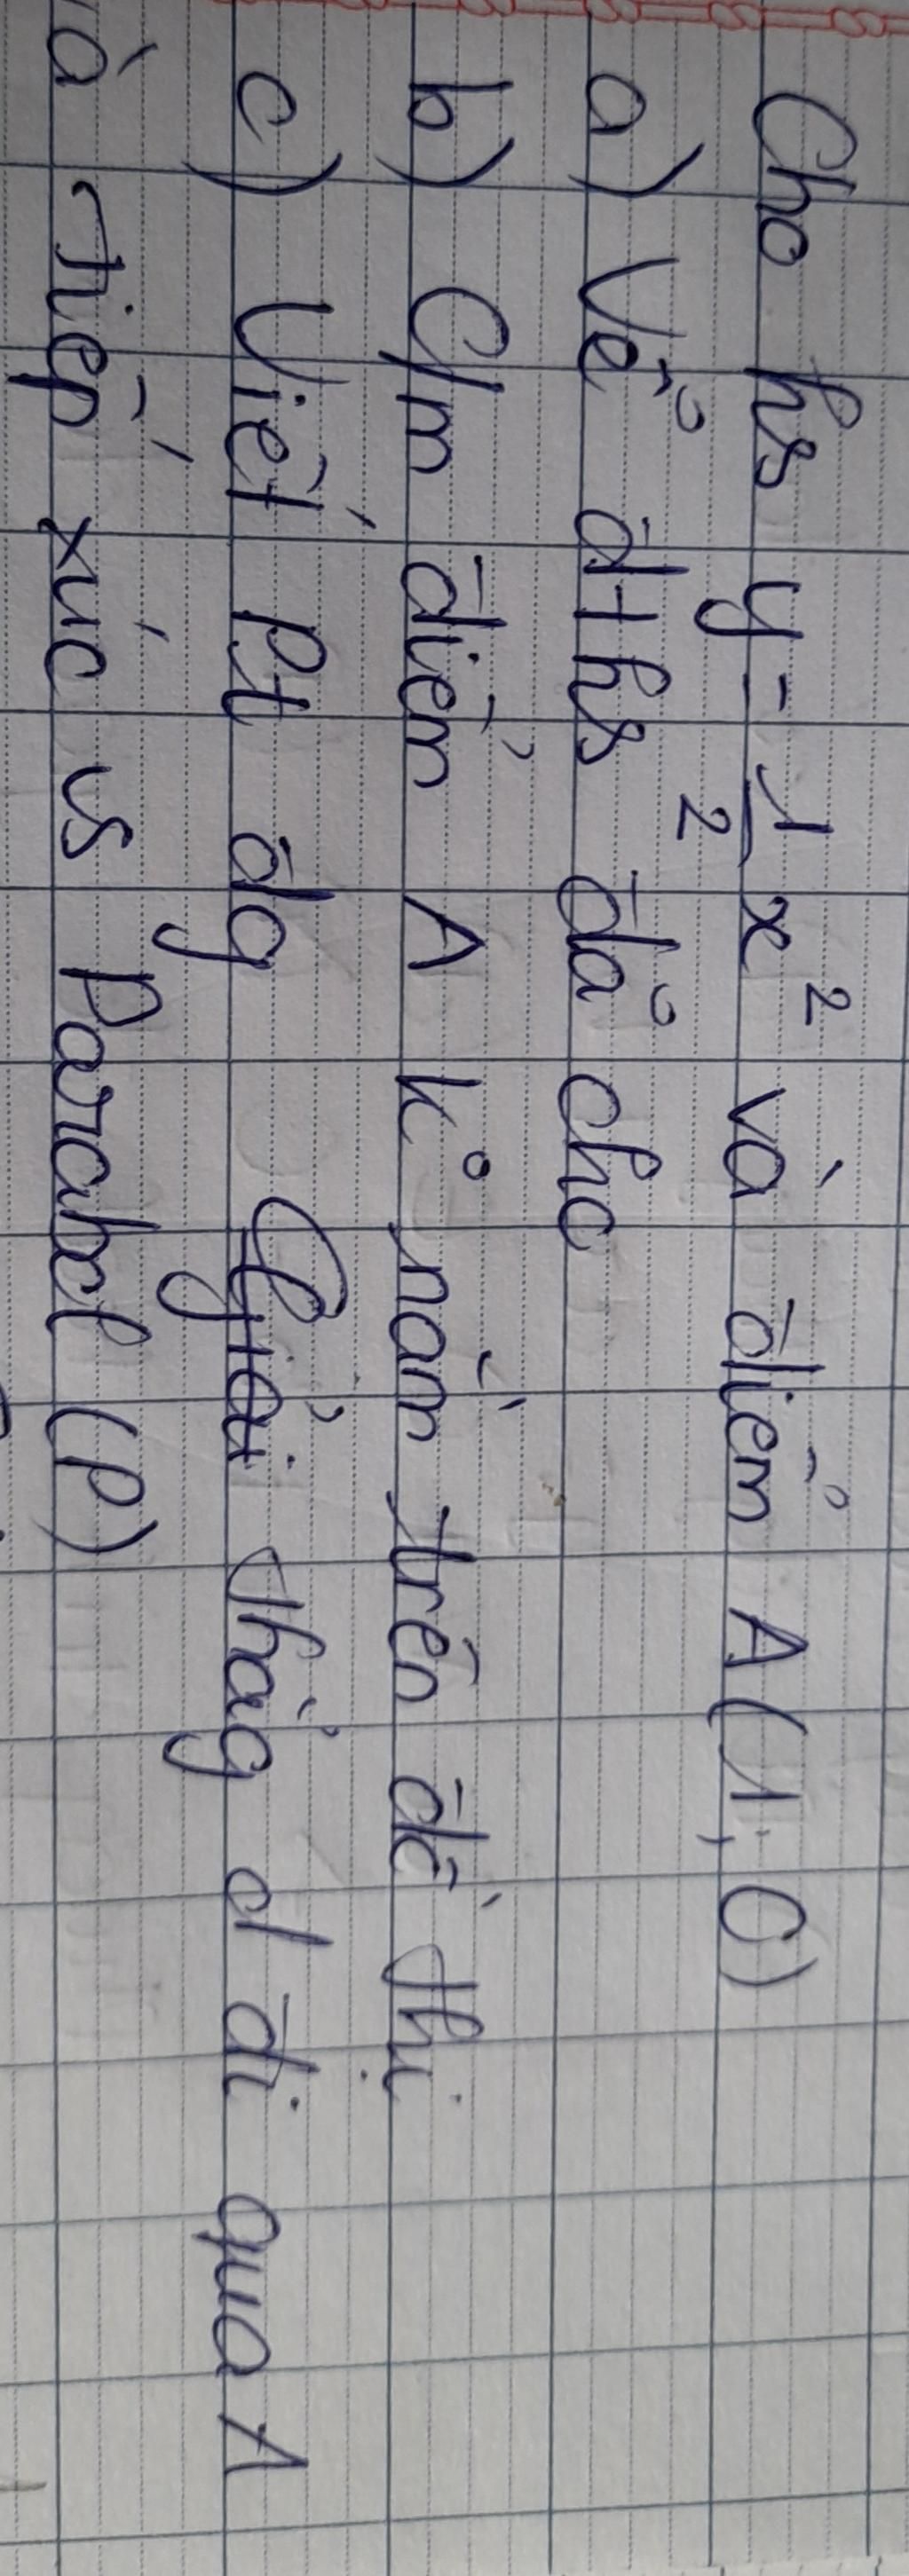 Cho hs y = 1/2 x² và điểm A(1; 0)
a) Vẽ đths đã cho
b) C/m điểm A k° nằm trên đồ thị
c) Viết Pt đg thẳg d đi qua A
và tiếp xúc vs Parabol (P)
Giải